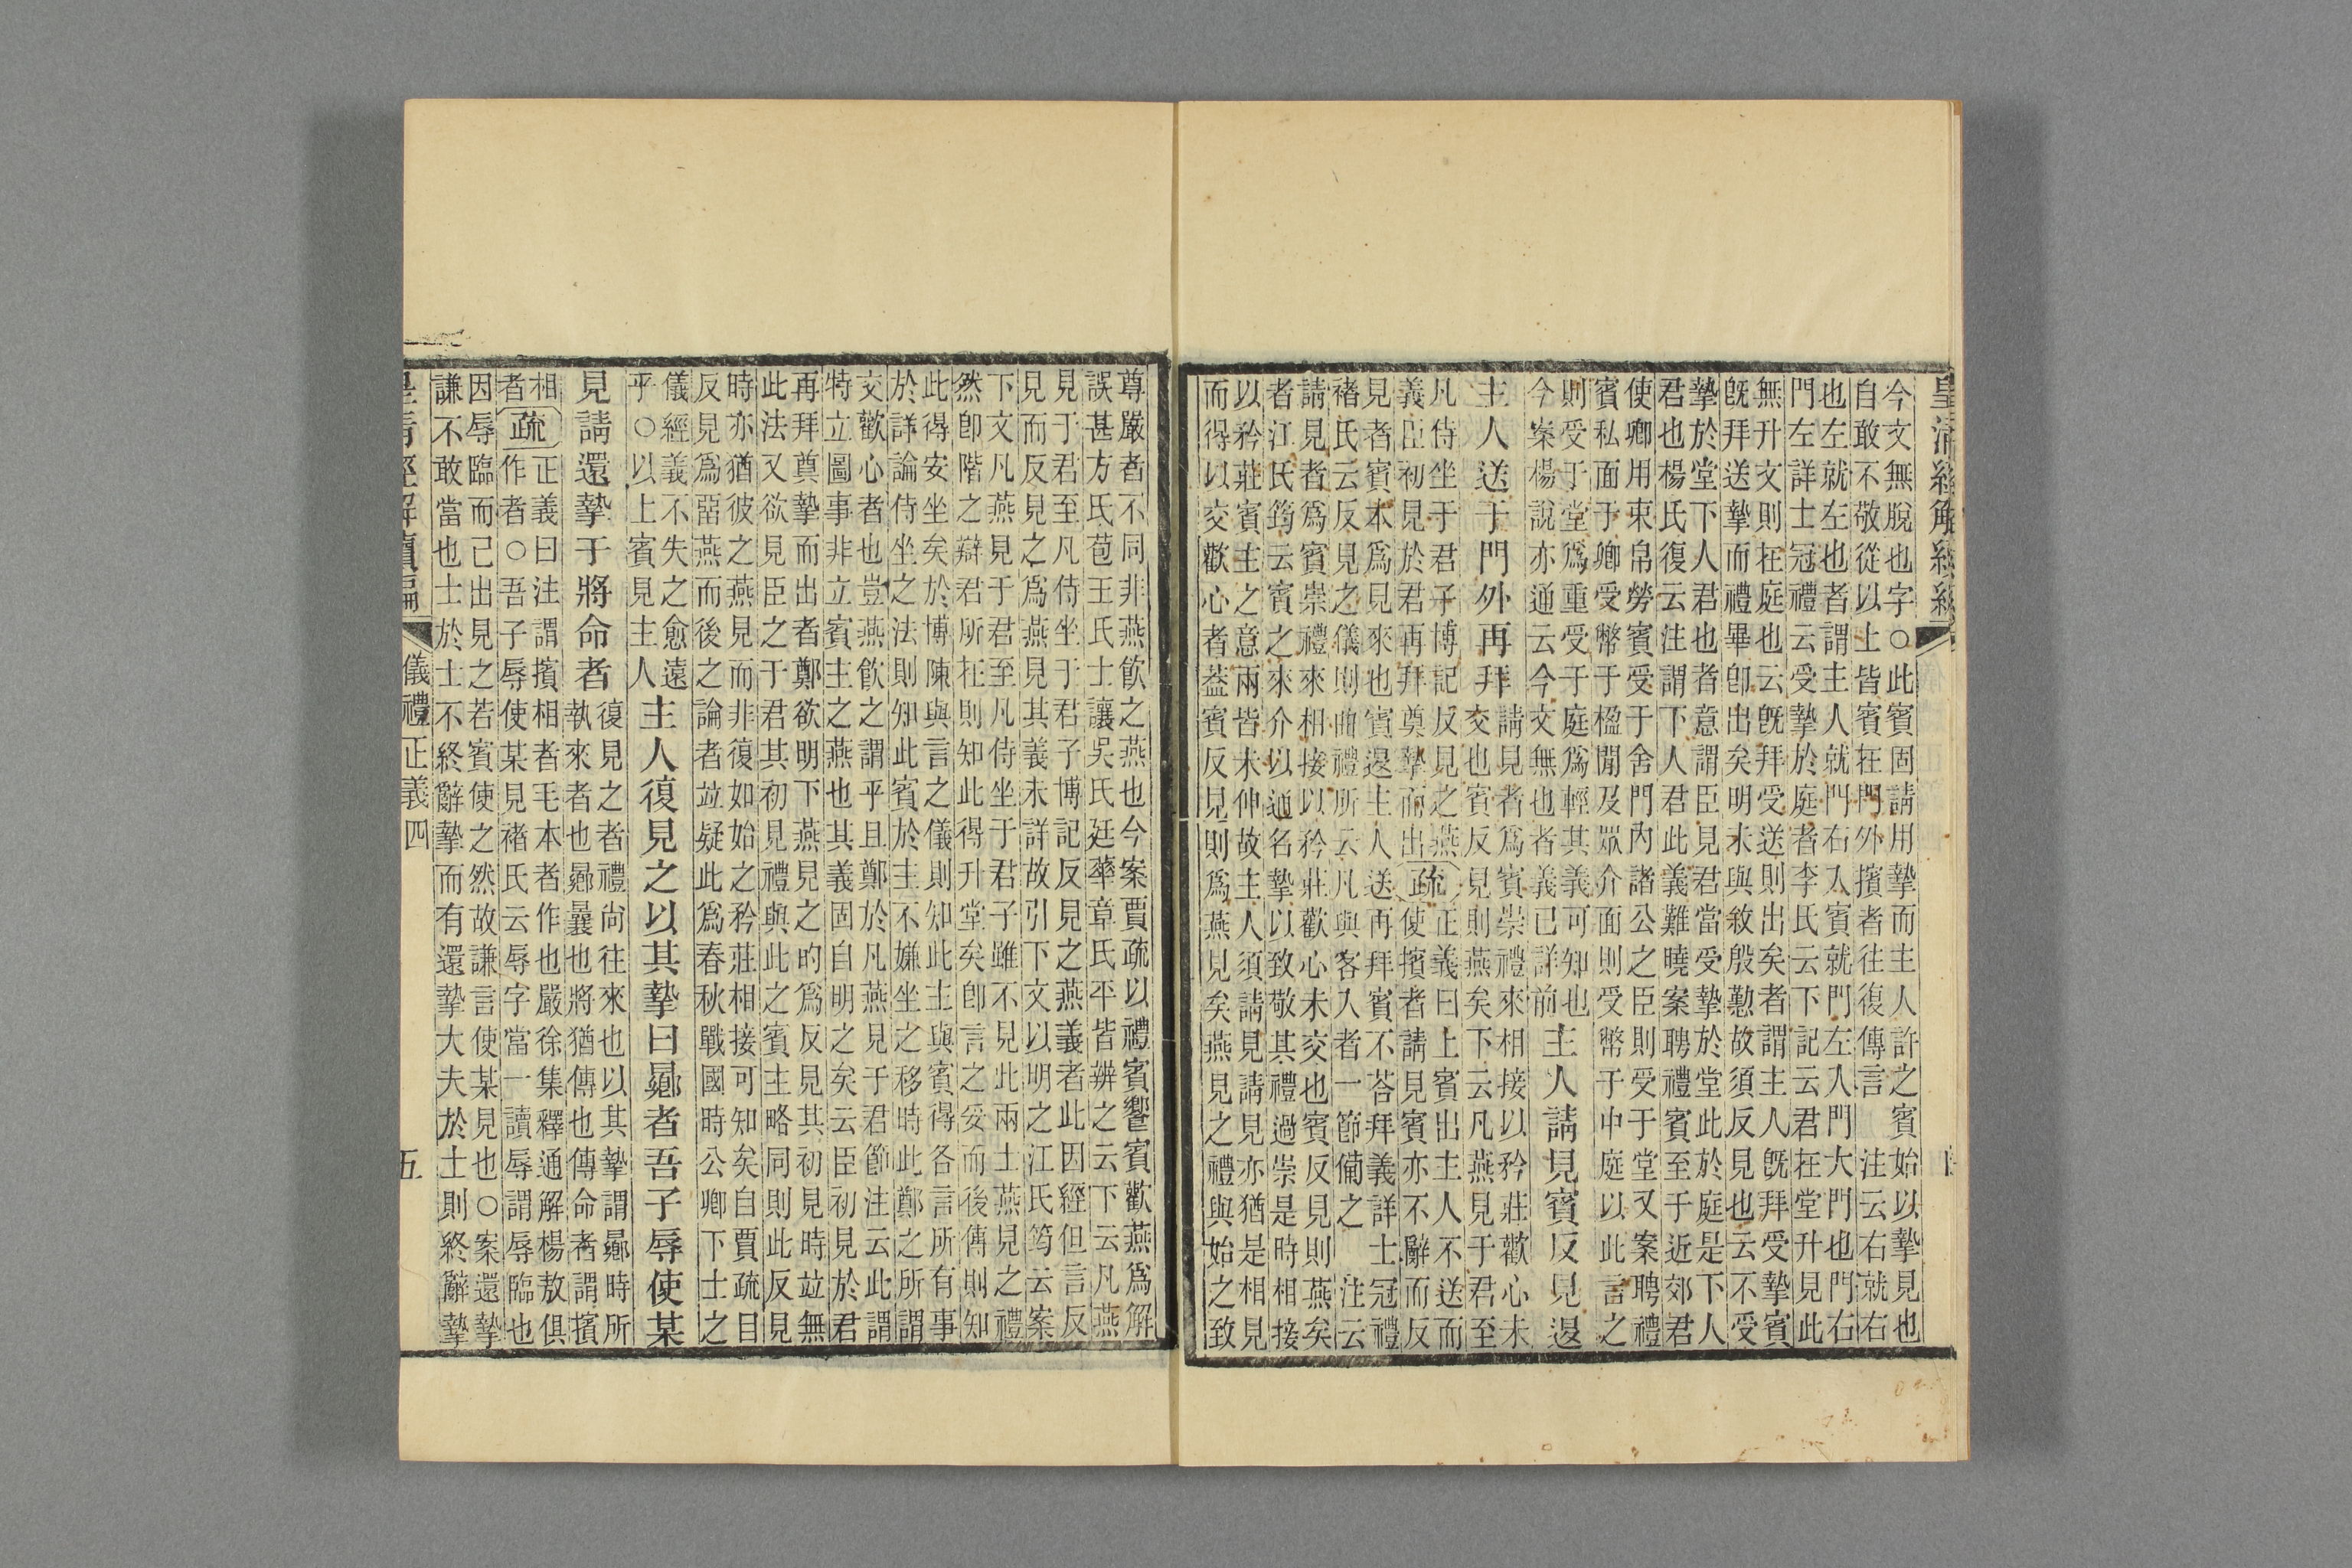 皇清經解續編
今文無脫也字○此賓固請用摯而主人許之賓始以摯見也
自敢不敬從以上皆賓在門外擯者往復傳言 注云右就右
也左就左也者謂主人就門右入賓就門左入門大門也門右
門左詳士冠禮云受摯於庭者李氏云下記云君在堂升見此
無升文則在庭也云既拜受送則出矣者謂主人既拜受摯賓
既拜送摯而禮畢卽出矣明未與敘殷懃故須反見也云不受
摯於堂下人君也者意謂臣見君當受摯於堂此於庭是下人
君也楊氏復云注謂下人君此義難曉案聘禮賓至于近郊君
使卿用束帛勞賓受于舍門內諸公之臣則受于堂又案聘禮
賓私面于卿受幣于楹閒及眾介面則受幣于中庭以此言之
則受于堂爲重受于庭爲輕其義可知也
今案楊說亦通云今文無也者義已詳前
主人請見賓反見退
主人送于門外再拜
請見者爲賓崇禮來相接以矜莊歡心未
交也賓反見則燕矣下云凡燕見于君至
凡侍坐于君子博記反見之燕
義臣初見於君再拜奠摯而出
疏
正義曰上賓出主人不送而
使擯者請見賓亦不辭而反
見者賓本爲見來也賓退主人送再拜賓不荅拜義詳士冠禮
褚氏云反見之儀則曲禮所云凡與客入者一節備之 注云
請見者爲賓崇禮來相接以矜莊歡心未交也賓反見則燕矣
者江氏筠云賓之來介以通名摯以致敬其禮過崇是時相接
以矜莊賓主之意兩皆未伸故主人須請見請見亦猶是相見
而得以交歡心者葢賓反見則爲燕見矣燕見之禮與始之致
尊嚴者不同非燕飮之燕也今案賈疏以禮賓饗賓歡燕爲解
誤甚方氏苞王氏士讓吳氏廷華章氏平皆辨之云下云凡燕
見于君至凡侍坐于君子博記反見之燕義者此因經但言反
見而反見之爲燕見其義未詳故引下文以明之江氏筠云案
下文凡燕見于君至凡侍坐于君子雖不見此兩士燕見之禮
然卽階之辯君所在則知此得升堂矣卽言之妥而後傳則知
此得安坐矣於博陳與言之儀則知此主與賓得各言所有事
於詳論侍坐之法則知此賓於主不嫌坐之移時此鄭之所謂
交歡心者也豈燕飮之謂乎且鄭於凡燕見于君節注云此謂
特立圖事非立賓主之燕也其義固自明之矣云臣初見於君
再拜奠摯而出者鄭欲明下燕見之的爲反見其初見時竝無
此法又欲見臣之于君其初見禮與此之賓主略同則此反見
時亦猶彼之燕見而非復如始之矜莊相接可知矣自賈疏目
反見爲踾燕而後之論者竝疑此爲春秋戰國時公卿下士之
儀經義不失之愈遠
乎○以上賓見主人
主人復見之以其摯曰曏者吾子辱使某
見請還摯于將命者
復見之者禮尙往來也以其摯謂曏時所
執來者也曏曩也將猶傳也傳命者謂擯
相
者
疏
正義曰注謂擯相者毛本者作也嚴徐集釋通解楊敖俱
作者○吾子辱使某見褚氏云辱字當一讀辱謂辱臨也
因辱臨而己出見之若賓使之然故謙言使某見也○案還摯
謙不敢當也士於士不終辭摯而有還摯大夫於士則終辭摯
皇清經解續編
儀禮正義四
五